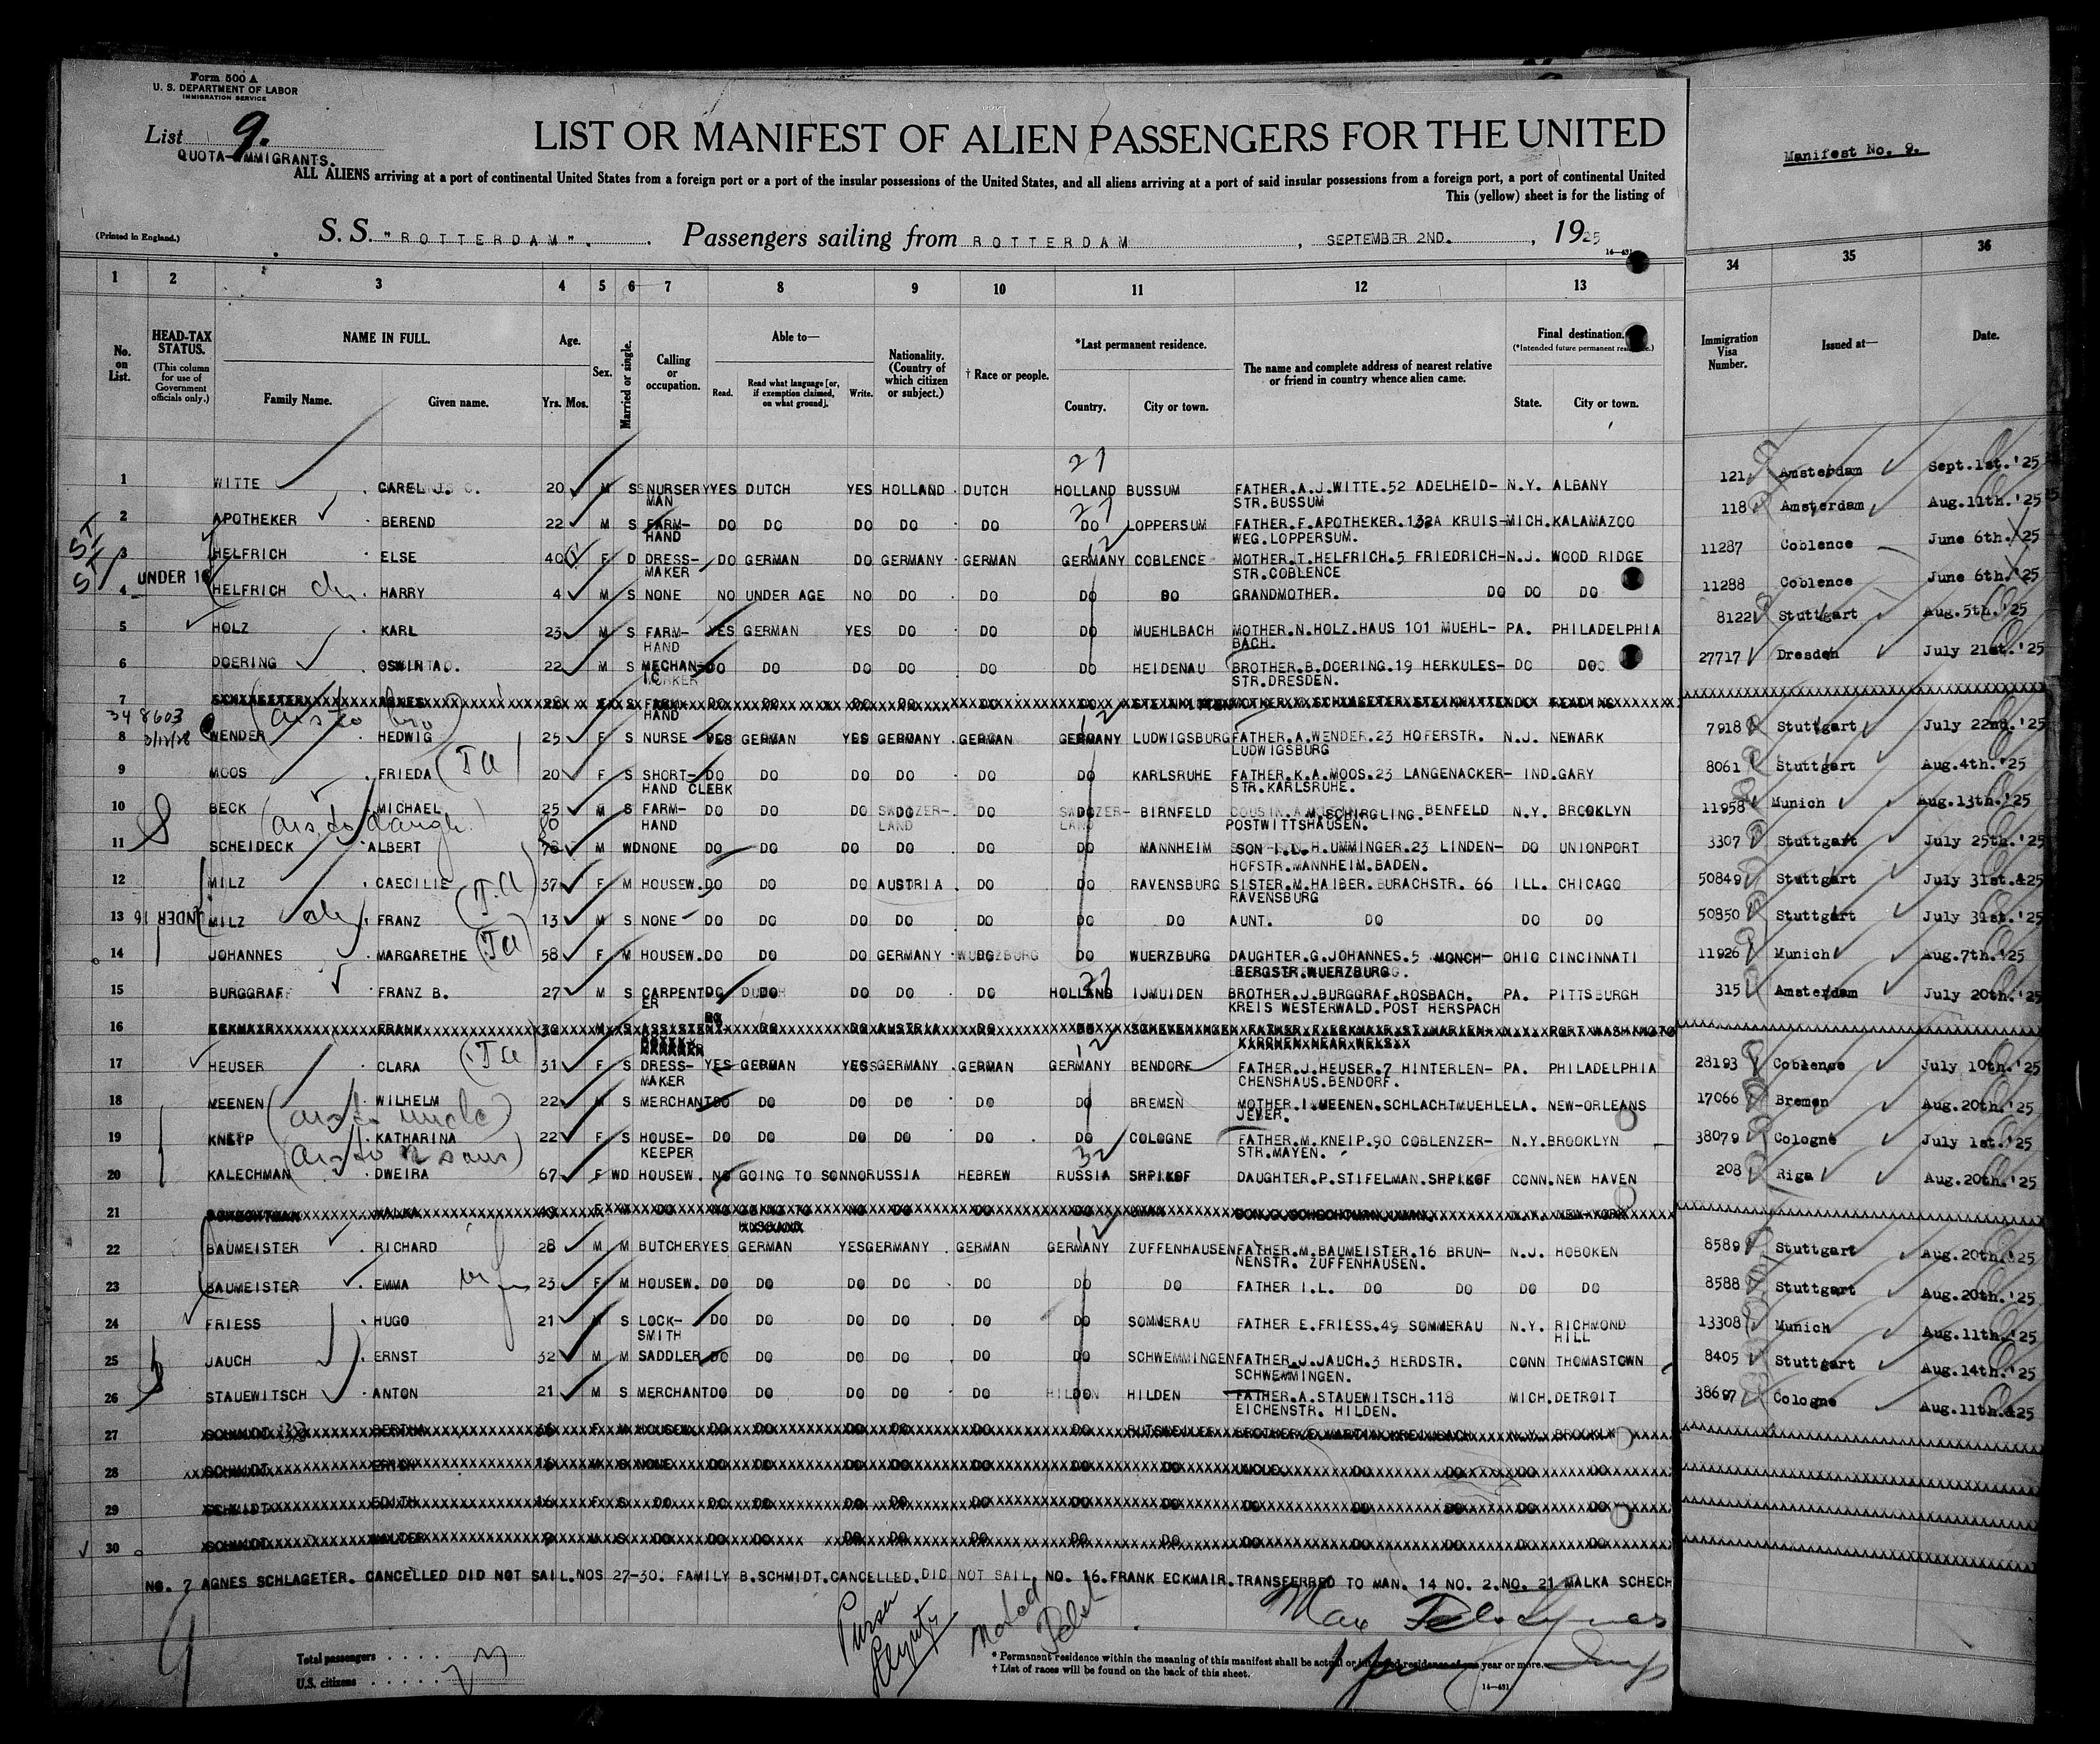 Form 500 A
U. S. DEPARTMENT OF LABOR
IMMIGRATION SERVICE
List 9.
QUOTA IMMIGRANTS.
LIST OR MANIFEST OF ALIEN PASSENGERS FOR THE UNITED
Manifest No. 9.
ALL ALIENS arriving at a port of continental United States from a foreign port or a port of the insular possessions of the United States, and all aliens arriving at a port of said insular possessions from a foreign port, a port of continental United
This (yellow) sheet is for the listing of
(Printed in England.)
S. S. "ROTTERDAM". Passengers sailing from ROTTERDAM , SEPTEMBER 2ND. , 1925
1 2 3 4 5 6 7 8 9 10 11 12 13 34 35 36
No. on List.
HEAD-TAX STATUS.
(This column for use of Government officials only.)
NAME IN FULL.
Family Name. Given name.
Age.
Yrs. Mos.
Sex.
Married or single.
Calling or occupation.
Able to—
Read. Read what language [or, if exemption claimed, on what ground]. Write.
Nationality. (Country of which citizen or subject.)
† Race or people.
*Last permanent residence.
Country. City or town.
The name and complete address of nearest relative or friend in country whence alien came.
Final destination.
(*Intended future permanent residence.)
State. City or town.
Immigration Visa Number.
Issued at—
Date.
1 WITTE CAREL J. 20 M S NURSERY YES DUTCH YES HOLLAND DUTCH HOLLAND BUSSUM FATHER.A.J.WITTE.52 ADELHEID- N.Y. ALBANY 121 Amsterdam Sept.1st.'25
MAN STR.BUSSUM
2 APOTHEKER BEREND 22 M S FARM- DO DO DO DO DO DO LOPPERSUM FATHER.F.APOTHEKER.132A KRUIS- MICH. KALAMAZOO 118 Amsterdam Aug.11th.'25
HAND WEG.LOPPERSUM.
3 HELFRICH ELSE 40 F D DRESS- DO GERMAN DO GERMANY GERMAN GERMANY COBLENCE MOTHER.T.HELFRICH.5 FRIEDRICH- N.J. WOOD RIDGE 11287 Coblence June 6th.'25
MAKER STR.COBLENCE
UNDER 16
4 HELFRICH HARRY 4 M S NONE NO UNDER AGE NO DO DO DO DO GRANDMOTHER. DO DO DO 11288 Coblence June 6th.'25
5 HOLZ KARL 23 M S FARM- YES GERMAN YES DO DO DO MUEHLBACH MOTHER.N.HOLZ.HAUS 101 MUEHL- PA. PHILADELPHIA 8122 Stuttgart Aug.5th.'25
HAND BACH.
6 DOERING 22 M S MECHAN- DO DO DO DO DO DO HEIDENAU BROTHER.B.DOERING.19 HERKULES- DO DO 27717 Dresden July 21st.'25
IC STR.DRESDEN.
7 SCHLAGETER AGNES 28 F S FARM- DO DO DO DO DO DO
HAND
34 8603
3/12/28
8 WENDER HEDWIG 25 F S NURSE YES GERMAN YES GERMANY GERMAN GERMANY LUDWIGSBURG FATHER.A.WENDER.23 HOFERSTR. N.J. NEWARK 7918 Stuttgart July 22nd.'25
LUDWIGSBURG
9 MOOS FRIEDA 20 F S SHORT- DO DO DO DO DO DO KARLSRUHE FATHER.K.A.MOOS.23 LANGENACKER- IND. GARY 8061 Stuttgart Aug.4th.'25
HAND CLERK STR.KARLSRUHE.
10 BECK MICHAEL 25 M S FARM- DO DO DO DO DO DO BIRNFELD M.SCHIRGLING. BENFELD N.Y. BROOKLYN 11958 Munich Aug.13th.'25
HAND POSTWITTSHAUSEN.
11 SCHEIDECK ALBERT 78 80 M WD NONE DO DO DO DO DO DO MANNHEIM SON I.L.H.UMMINGER.23 LINDEN- DO UNIONPORT 3307 Stuttgart July 25th.'25
HOFSTR.MANNHEIM.BADEN.
12 MILZ CAECILIE 37 F M HOUSEW. DO DO DO AUSTRIA DO DO RAVENSBURG SISTER.M.HAIBER.BURACHSTR. 66 ILL. CHICAGO 50849 Stuttgart July 31st.'25
RAVENSBURG
13 UNDER 16 MILZ FRANZ 13 M S NONE DO DO DO DO DO DO DO AUNT. DO DO DO 50850 Stuttgart July 31st.'25
14 JOHANNES MARGARETHE 58 F M HOUSEW. DO DO DO GERMANY DO DO WUERZBURG DAUGHTER.G.JOHANNES.5 MONCH- OHIO CINCINNATI 11926 Munich Aug.7th.'25
BERGSTR.WUERZBURG.
15 BURGGRAF FRANZ B. 27 M S CARPENT- DO DO DO DO DO HOLLAND IJMUIDEN BROTHER.J.BURGGRAF.ROSBACH. PA. PITTSBURGH 315 Amsterdam July 20th.'25
ER KREIS WESTERWALD.POST HERSPACH
16 ECKMAIR FRANK 30 M S ASSISTENT- DO DO AUSTRIA DO DO SCHEVENINGEN
17 HEUSER CLARA 31 F S DRESS- YES GERMAN YES GERMANY GERMAN GERMANY BENDORF FATHER.J.HEUSER.7 HINTERLEN- PA. PHILADELPHIA 28193 Coblence July 10th.'25
MAKER CHENSHAUS.BENDORF.
18 MEENEN WILHELM 22 M S MERCHANT DO DO DO DO DO DO BREMEN MOTHER.I.MEENEN.SCHLACHTMUEHLE LA. NEW-ORLEANS 17066 Bremen Aug.20th.'25
JEVER.
19 KNEIP KATHARINA 22 F S HOUSE- DO DO DO DO DO DO COLOGNE FATHER.M.KNEIP.90 COBLENZER- N.Y. BROOKLYN 38079 Cologne July 1st.'25
KEEPER STR.MAYEN.
20 KALECHMAN DWEIRA 67 F WD HOUSEW. NO GOING TO SON NO RUSSIA HEBREW RUSSIA SHPIKOF DAUGHTER.P.STIFELMAN.SHPIKOF CONN. NEW HAVEN 208 Riga Aug.20th.'25
21 MALKA F M DO NO GOING TO NO DO DO DO UMAN N.Y. NEW-YORK
HUSBAND
22 BAUMEISTER RICHARD 28 M M BUTCHER YES GERMAN YES GERMANY GERMAN GERMANY ZUFFENHAUSEN FATHER.M.BAUMEISTER.16 BRUN- N.J. HOBOKEN 8589 Stuttgart Aug.20th.'25
NENSTR. ZUFFENHAUSEN.
23 BAUMEISTER EMMA 23 F M HOUSEW. DO DO DO DO DO DO DO FATHER I.L. DO DO DO DO 8588 Stuttgart Aug.20th.'25
24 FRIESS HUGO 21 M S LOCK- DO DO DO DO DO DO SOMMERAU FATHER E.FRIESS.49 SOMMERAU N.Y. RICHMOND 13308 Munich Aug.11th.'25
SMITH HILL
25 JAUCH ERNST 32 M M SADDLER DO DO DO DO DO DO SCHWEMMINGEN FATHER.J.JAUCH.3 HERDSTR. CONN THOMASTOWN 8405 Stuttgart Aug.14th.'25
SCHWEMMINGEN.
26 STAUEWITSCH ANTON 21 M S MERCHANT DO DO DO DO DO DO HILDEN FATHER.A.STAUEWITSCH.118 MICH. DETROIT 38697 Cologne Aug.11th.'25
EICHENSTR. HILDEN.
27 SCHMIDT BERTHA 36 F M HOUSEW. DO DO DO DO DO DO RUTSWEILER BROTHER N.Y. BROOKLYN
28 SCHMIDT ERICH M S NONE DO DO DO DO DO DO DO UNCLE. DO DO DO DO
29 SCHMIDT EDITH F S DO DO DO DO DO DO DO DO DO DO DO DO DO
30 SCHMIDT WALTER 9 M S DO DO DO DO DO DO DO DO DO DO DO DO DO
NO. 7 AGNES SCHLAGETER. CANCELLED DID NOT SAIL. NOS 27-30. FAMILY B.SCHMIDT. CANCELLED. DID NOT SAIL. NO. 16. FRANK ECKMAIR. TRANSFERRED TO MAN. 14 NO. 2. NO. 21 MALKA SCHECH
Purser
Deputy
Total passengers
U.S. citizens
* Permanent residence within the meaning of this manifest shall be actual or intended residence of one year or more.
† List of races will be found on the back of this sheet.
14—431